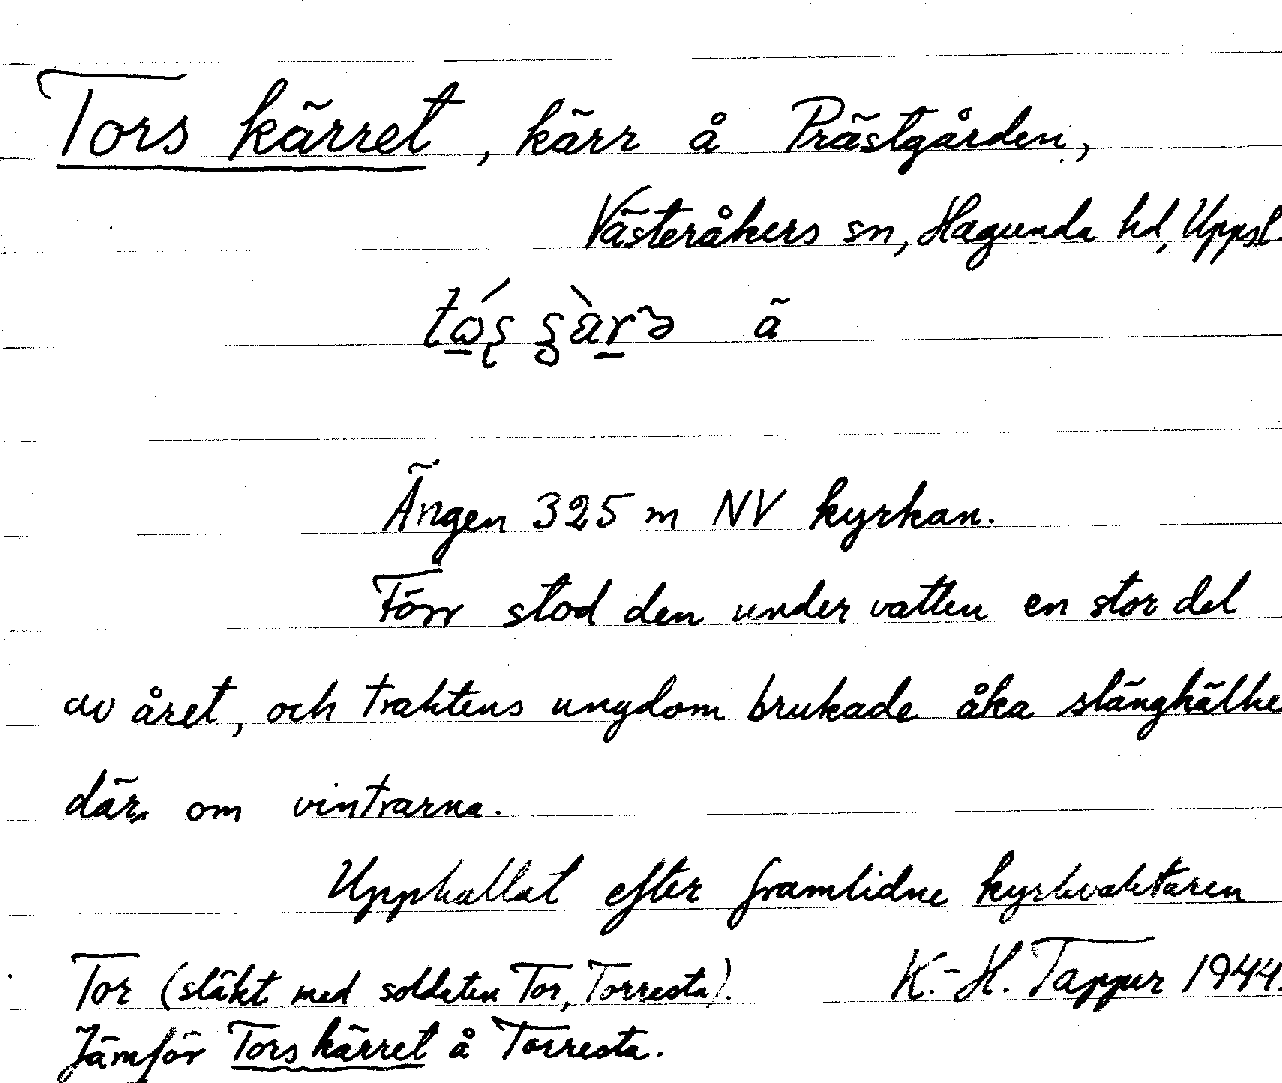 Tors kärret, kärr å Prästgården,
Västeråkers sn, Hagunda hd, Uppsl.
ä
Ängen 325 m NV kyrkan.
Förr stod den under vatten en stor del
av året, och traktens ungdom brukade åka slängkälke
där om vintrarna.
Uppkallat efter framlidne kyrkvaktaren
Tor (släkt med soldaten Tor, Torresta). K.-H. Tappur 1944.
Jämför Torskärret å Torresta.